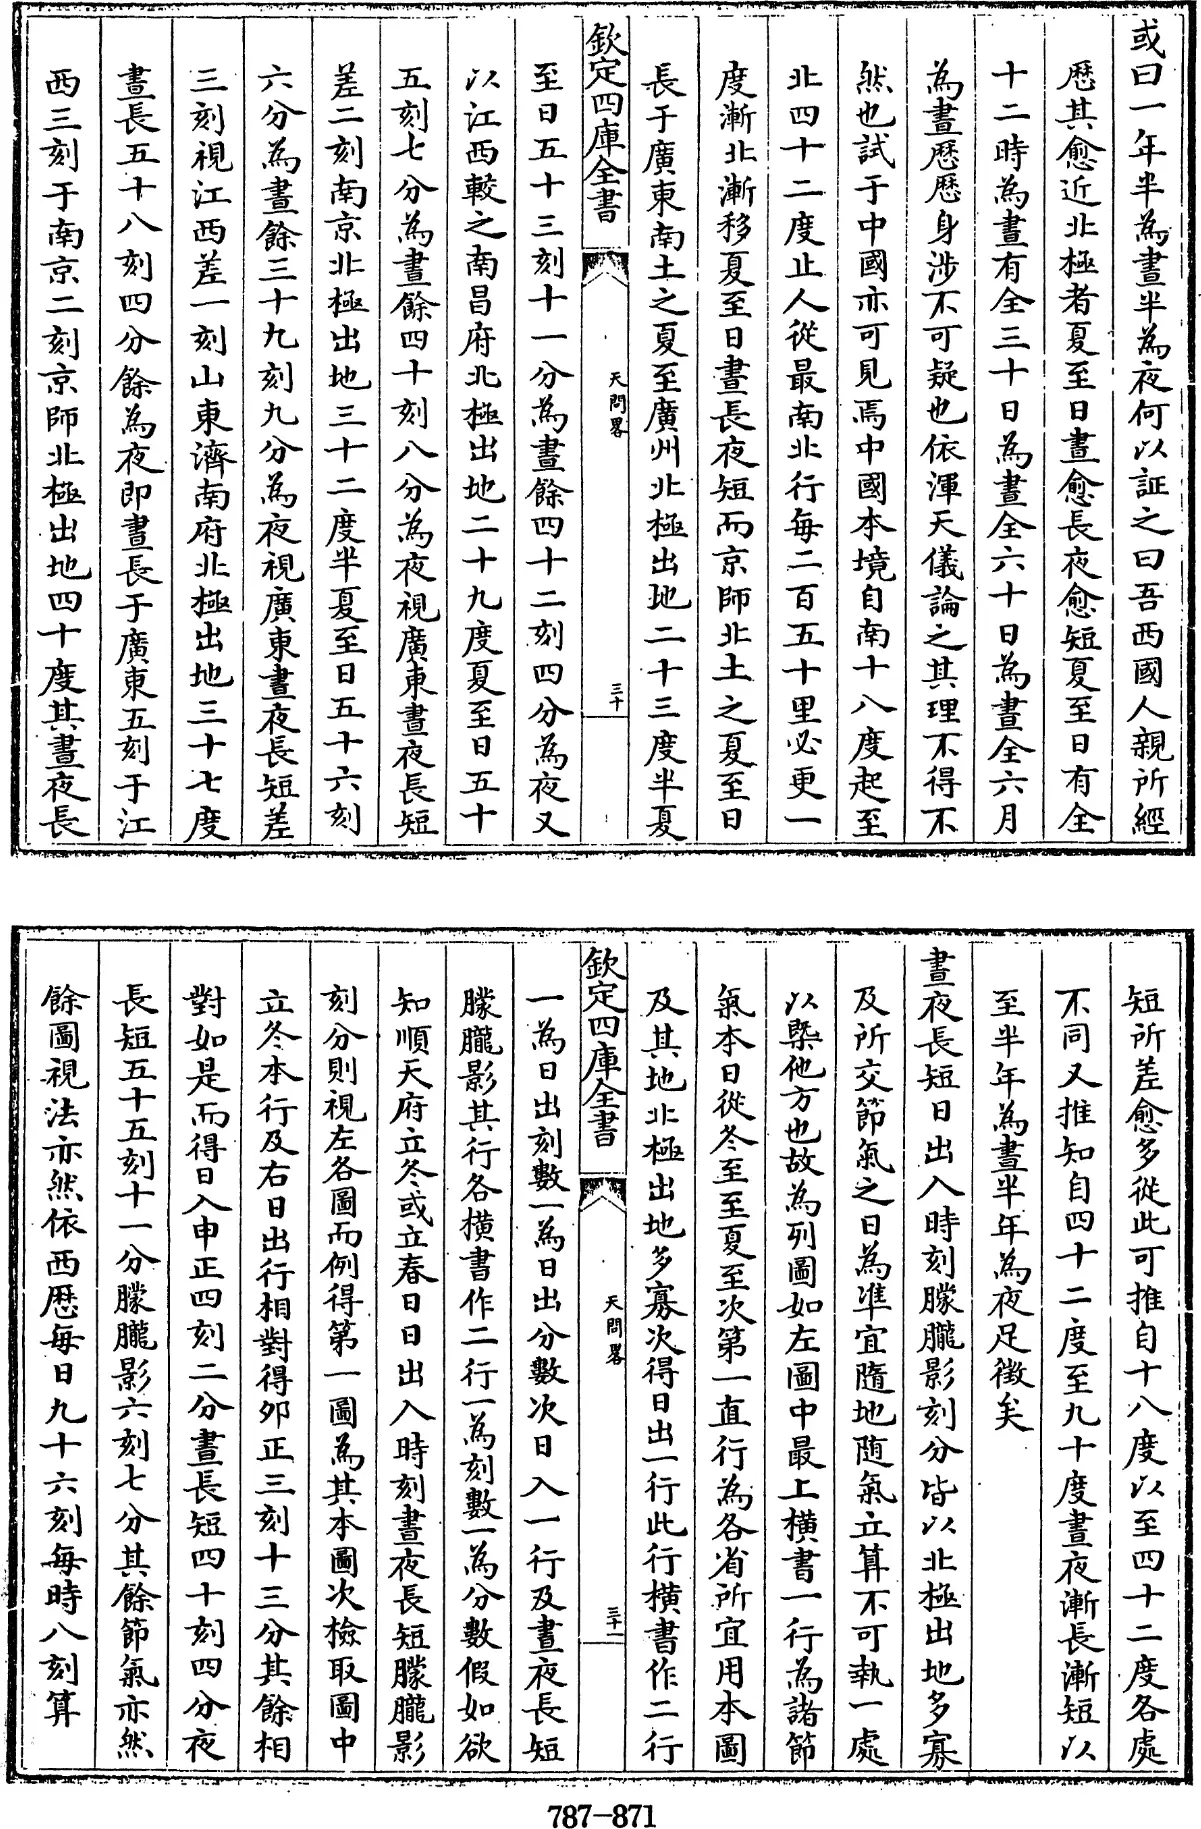 或曰一年半為晝半為夜何以証之曰吾西國人親所經
歴其愈近北極者夏至日晝愈長夜愈短夏至日有全
十二時為晝有全三十日為晝全六十日為晝全六月
為晝歴歴身涉不可疑也依渾天儀論之其理不得不
然也試于中國亦可見焉中國本境自南十八度起至
北四十二度止人從最南北行每二百五十里必更一
度漸北漸移夏至日晝長夜短而京師北土之夏至日
長于廣東南土之夏至廣州北極出地二十三度半夏
欽定四庫全書
天問畧
三十
至日五十三刻十一分為晝餘四十二刻四分為夜又
以江西較之南昌府北極出地二十九度夏至日五十
五刻七分為晝餘四十刻八分為夜視廣東晝夜長短
差二刻南京北極出地三十二度半夏至日五十六刻
六分為晝餘三十九刻九分為夜視廣東晝夜長短差
三刻視江西差一刻山東濟南府北極出地三十七度
晝長五十八刻四分餘為夜即晝長于廣東五刻于江
西三刻于南京二刻京師北極出地四十度其晝夜長
短所差愈多從此可推自十八度以至四十二度各處
不同又推知自四十二度至九十度晝夜漸長漸短以
至半年為晝半年為夜足徴矣
晝夜長短日出入時刻朦朧影刻分皆以北極出地多寡
及所交節氣之日為準宜隨地随氣立算不可執一處
以槩他方也故為列圖如左圖中最上横書一行為諸節
氣本日從冬至至夏至次第一直行為各省所宜用本圖
及其地北極出地多寡次得日出一行此行横書作二行
欽定四庫全書
天問畧
三十一
一為日出刻數一為日出分數次日入一行及晝夜長短
朦朧影其行各横書作二行一為刻數一為分數假如欲
知順天府立冬或立春日日出入時刻晝夜長短朦朧影
刻分則視左各圖而例得第一圖為其本圖次檢取圖中
立冬本行及右日出行相對得夘正三刻十三分其餘相
對如是而得日入申正四刻二分晝長短四十刻四分夜
長短五十五刻十一分朦朧影六刻七分其餘節氣亦然
餘圖視法亦然依西歴每日九十六刻每時八刻算
787-871